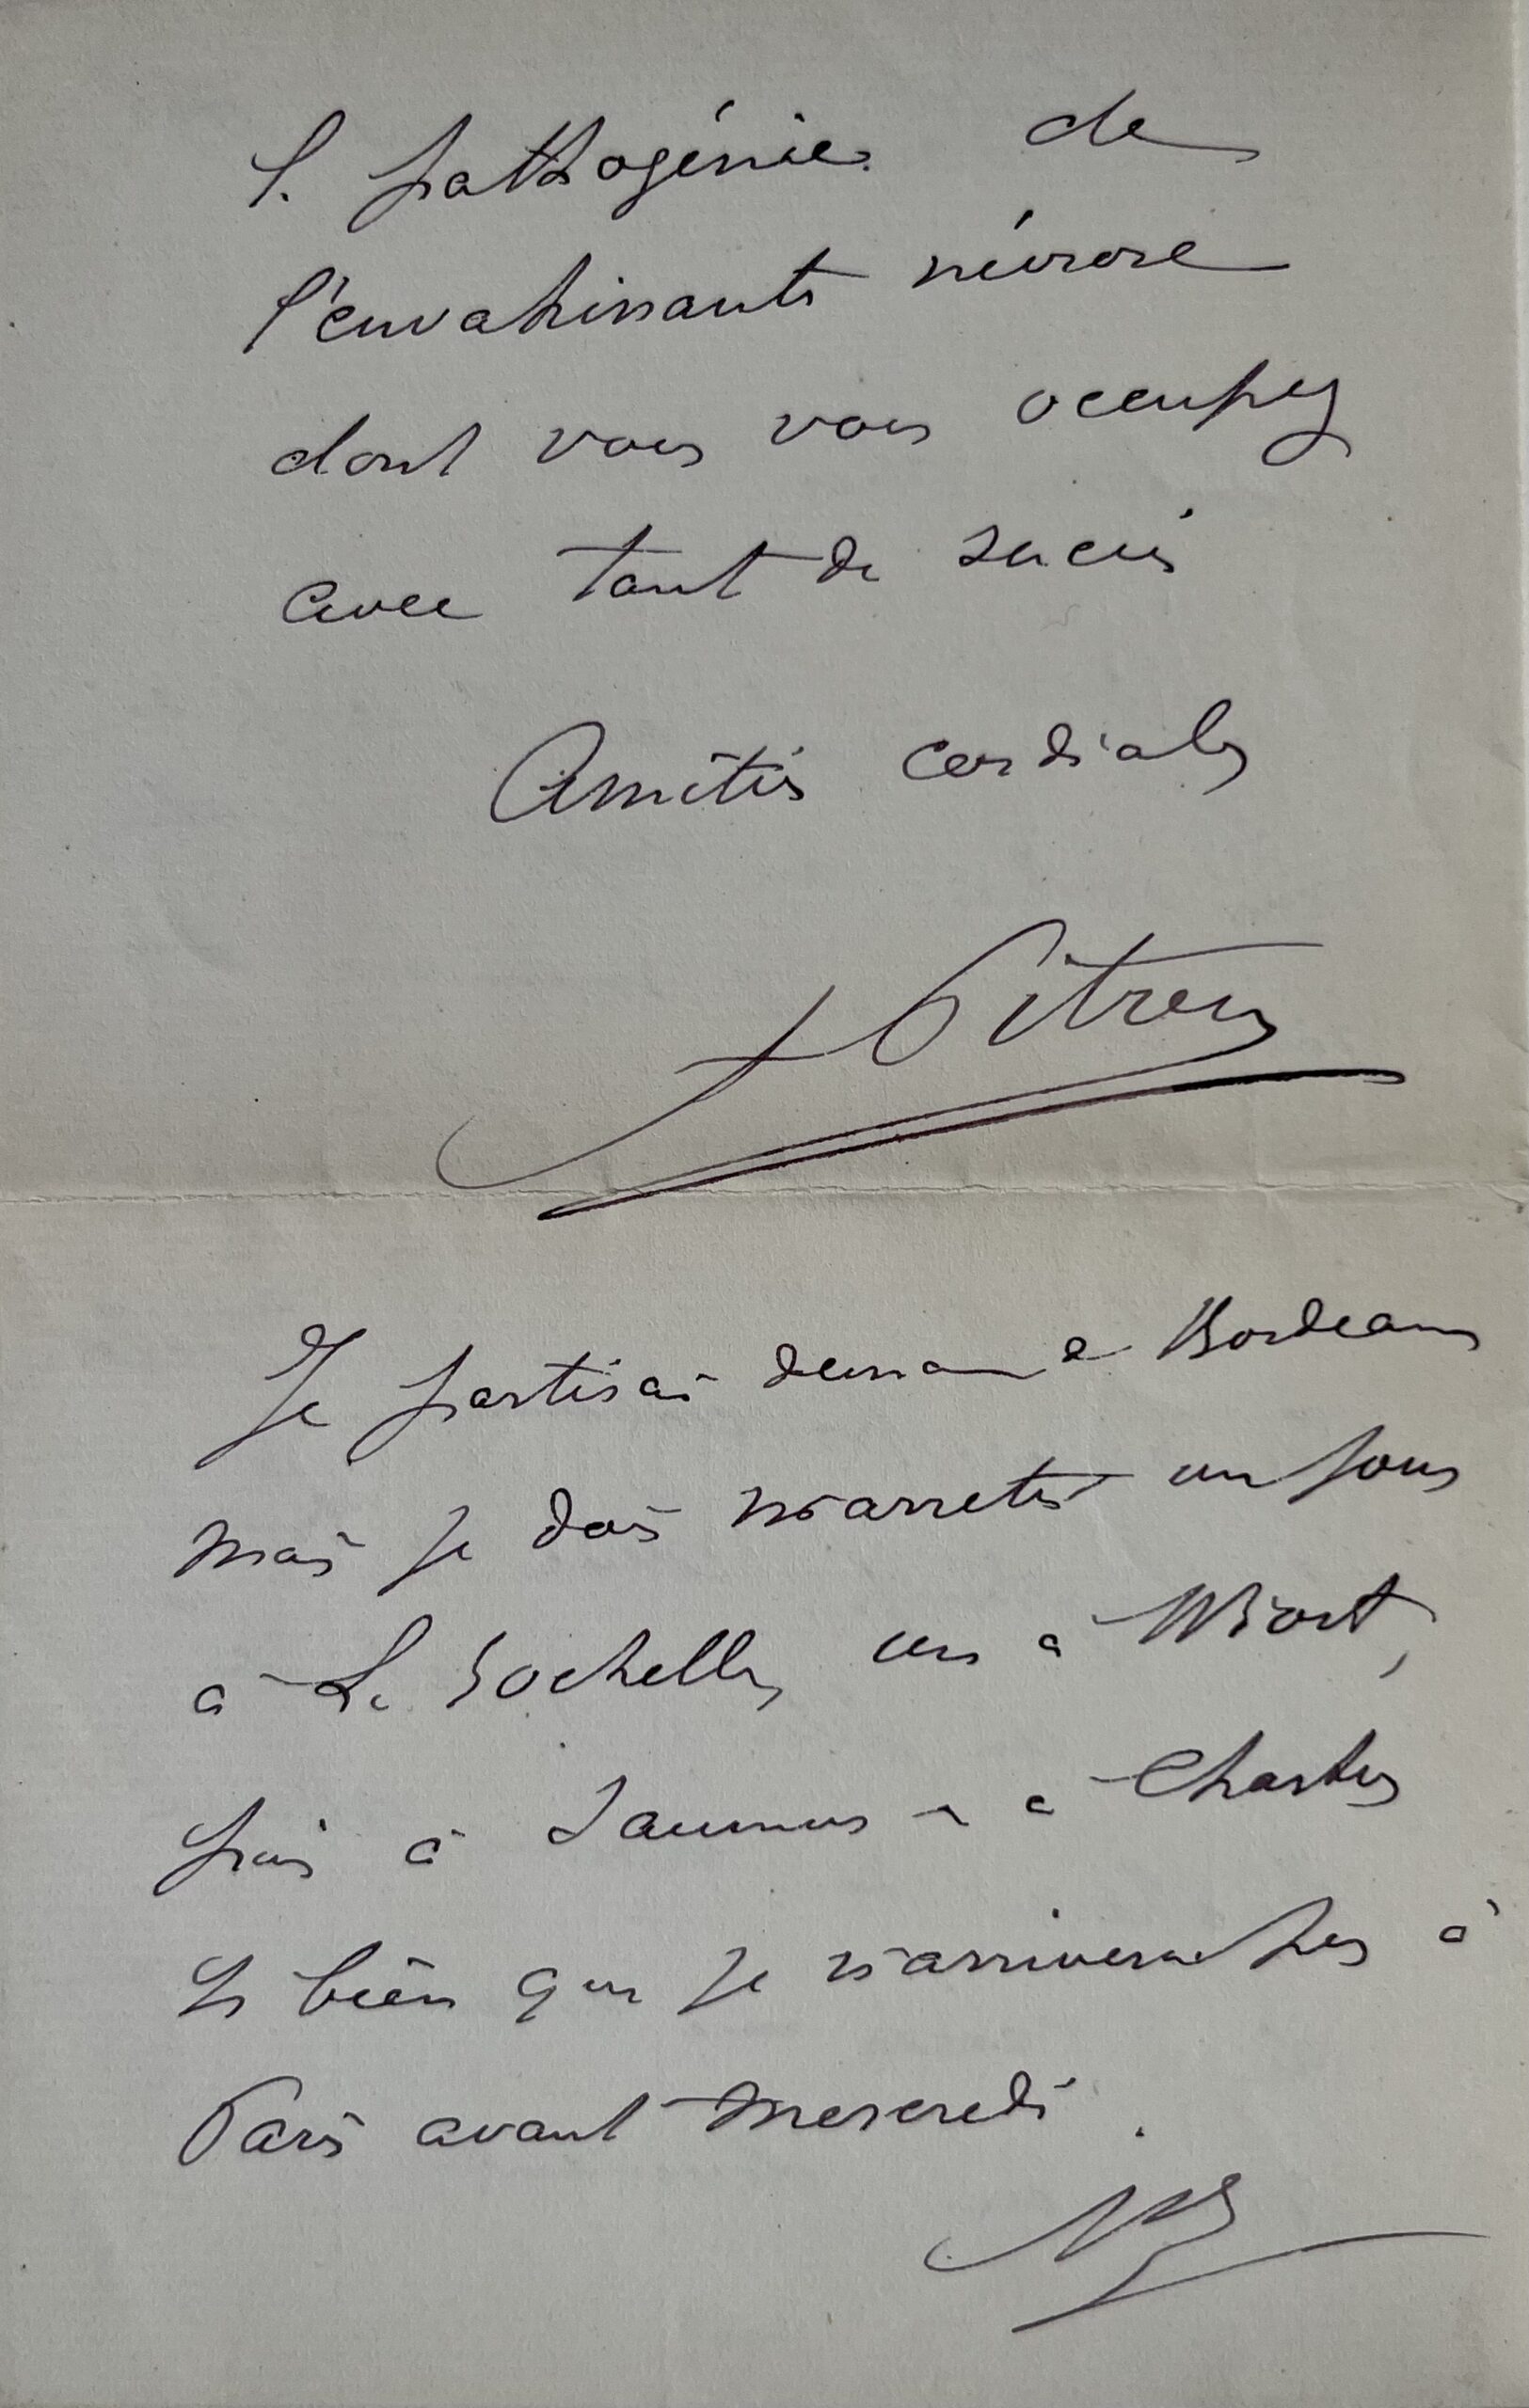 la pathogénie de
l'envahissante névrose
dont vous vous occupez
avec tant de succès
Amitiés cordiales
A Pitres
Je partirai demain de Bordeaux
mais je dois m'arreter un jour
à La Rochelle, un à Niort,
puis à Saumur et à Chartres
si bien que je n'arriverai pas à
Paris avant mercredi.